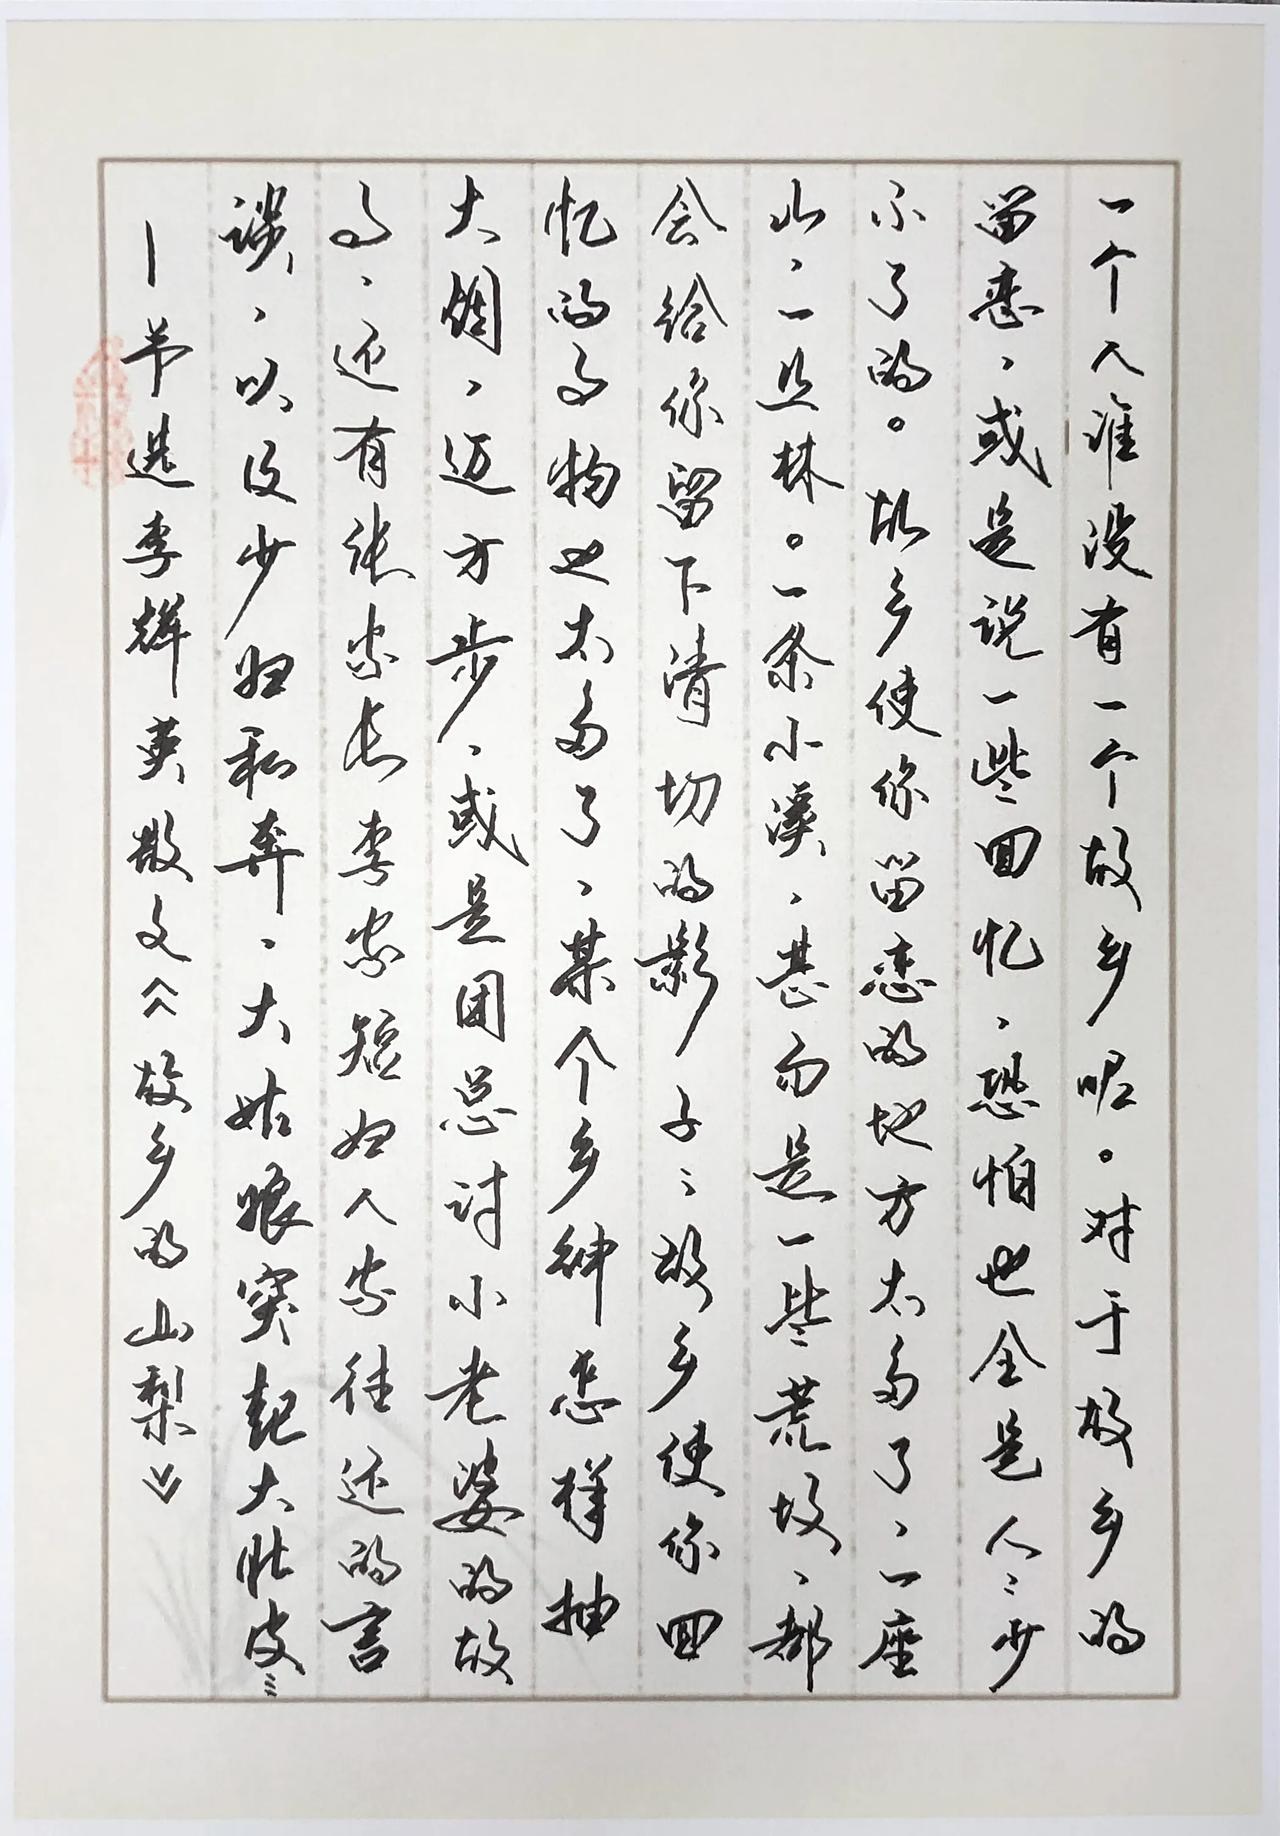 一个人谁没有一个故乡呢。对于故乡的
留恋、或是说一些回忆、恐怕也全是人人少
不了的。故乡使你留恋的地方太多了、一座
山、一丛林。一条小溪、甚而是一些荒坟、都
会给你留下清切的影子；故乡使你回
忆的事物也太多了、某个乡绅怎样抽
大烟、迈方步、或是团总讨小老婆的故
事、还有张家长李家短妇人家往还的言
谈、以及少妇私奔、大姑娘突起大肚皮……
—节选李辉英散文《故乡的山梨》